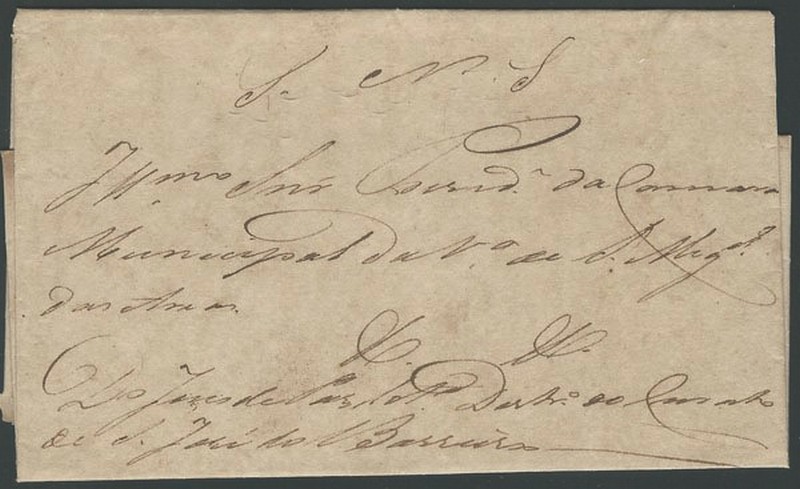 S. N. S
Illmo Snr Presid.e da Camara
Municipal da Va de S. Migl
das Areas
Do Juis de Paz do Destro do Curato
de S. José do Barreiro